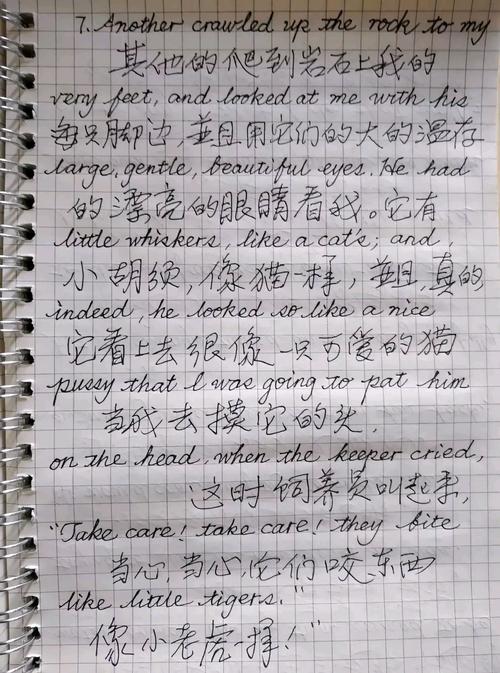 7. Another crawled up the rock to my
其他的爬到岩石上我的
very feet, and looked at me with his
每只脚边,並且用它们的大的温存
large, gentle, beautiful eyes. He had
的漂亮的眼睛看我。它有
little whiskers, like a cat's; and,
小胡须,像猫一样,並且,真的
indeed, he looked so like a nice
它看上去很像一只可爱的猫
pussy that I was going to pat him
当我去摸它的头,
on the head, when the keeper cried,
这时饲养员叫起来,
"Take care! take care! they bite
当心,当心,它们咬东西
like little tigers."
像小老虎一样!"